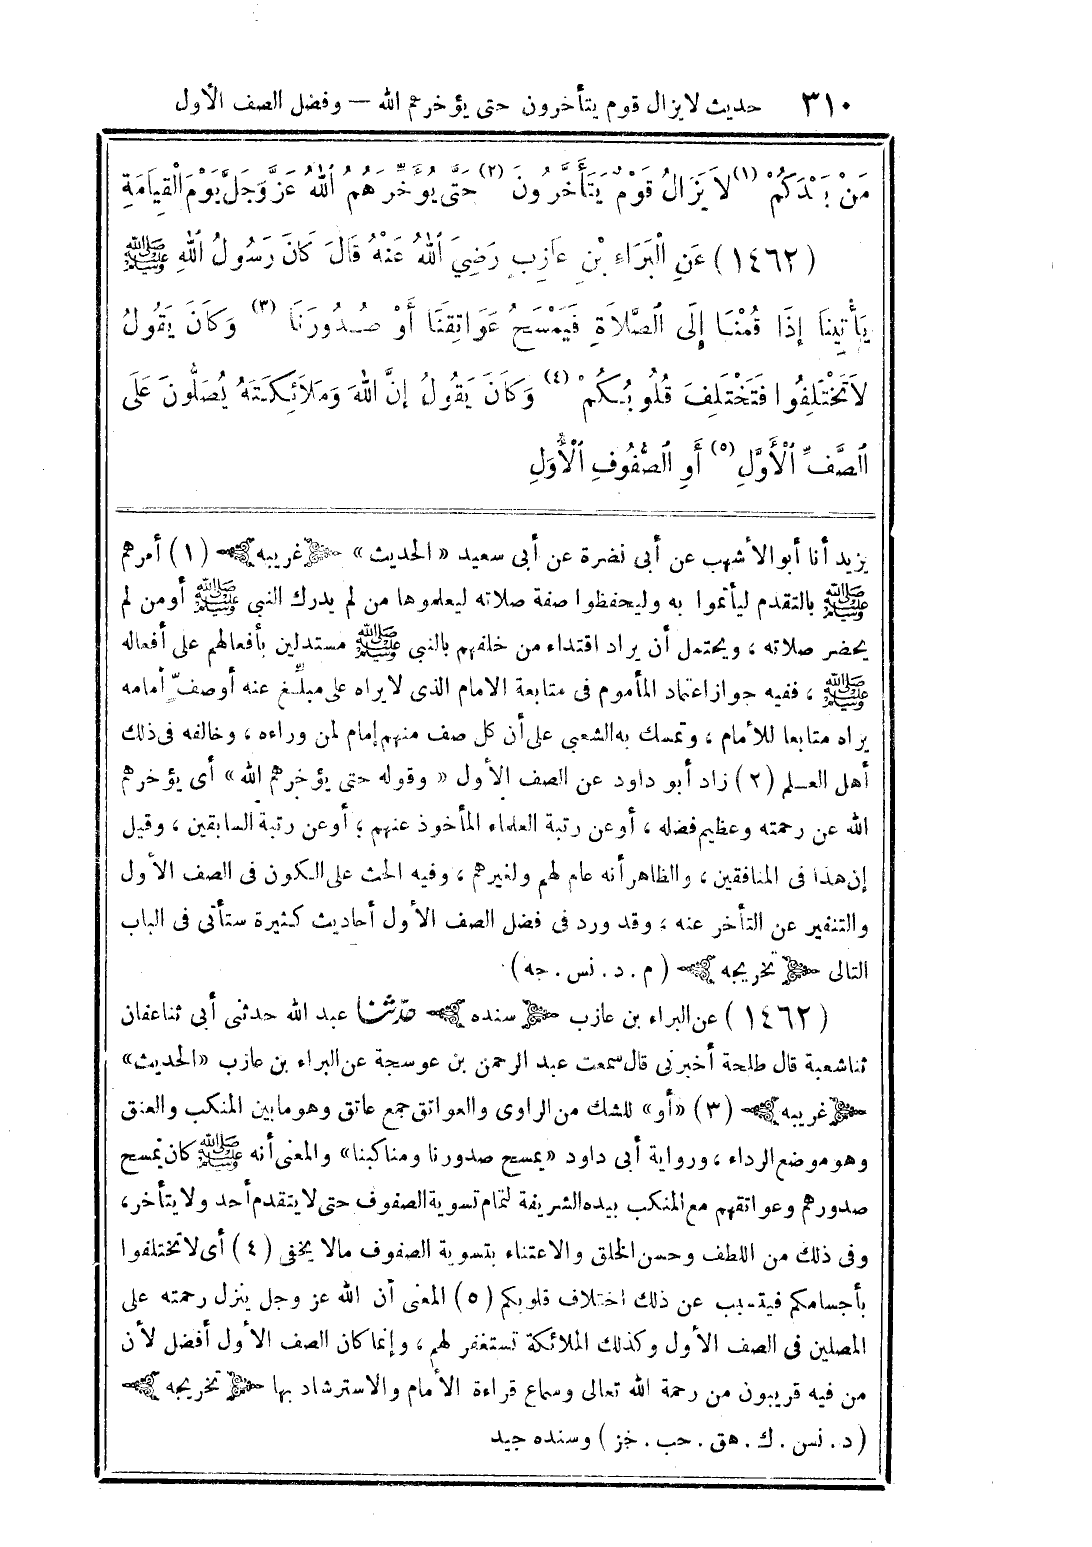 ٣١٠ حديث لا يزال قوم يتأخرون حتى يؤخرهم الله – وفضل الصف الأول
مَنْ بَعْدَكُمْ (١) لاَ يَزَالُ قَوْمٌ يَتَأَخَّرُونَ (٢) حَتَّى يُؤَخِّرَهُمُ اللهُ عَزَّ وَجَلَّ يَوْمَ الْقِيَامَةِ
(١٤٦٢) عَنِ الْبَرَاءِ بْنِ عَازِبٍ رَضِيَ اللهُ عَنْهُ قَالَ كَانَ رَسُولُ اللهِ ﷺ
يَأْتِينَا إِذَا قُمْنَا إِلَى الصَّلاَةِ فَيَمْسَحُ عَوَاتِقَنَا أَوْ صُدُورَنَا (٣) وَكَانَ يَقُولُ
لاَ تَخْتَلِفُوا فَتَخْتَلِفَ قُلُوبُكُمْ (٤) وَكَانَ يَقُولُ إِنَّ اللهَ وَمَلاَئِكَتَهُ يُصَلُّونَ عَلَى
الصَّفِّ الْأَوَّلِ (٥) أَوِ الصُّفُوفِ الْأُوَلِ
يزيد أنا أبو الأشهب عن أبى نضرة عن أبى سعيد «الحديث» ﴿غريبه﴾ (١) أمرهم
ﷺ بالتقدم ليأتموا به وليحفظوا صفة صلاته ليعلموها من لم يدرك النبي ﷺ أو من لم
يحضر صلاته ، ويحتمل أن يراد اقتداء من خلفهم بالنبي ﷺ مستدلين بأفعالهم على أفعاله
ﷺ ، ففيه جواز اعتماد المأموم فى متابعة الامام الذى لا يراه على مبلّغ عنه أو صفّ أمامه
يراه متابعا للأمام ، وتمسك به الشعبي على أن كل صف منهم إمام لمن وراءه ، وخالفه فى ذلك
أهل العلم (٢) زاد أبو داود عن الصف الأول « وقوله حتى يؤخرهم الله » أى يؤخرهم
الله عن رحمته وعظيم فضله ، أو عن رتبة العلماء المأخوذ عنهم ؛ أو عن رتبة السابقين ، وقيل
إن هذا فى المنافقين ، والظاهر أنه عام لهم ولغيرهم ، وفيه الحث على الكون فى الصف الأول
والتنفير عن التأخر عنه ، وقد ورد فى فضل الصف الأول أحاديث كثيرة ستأتى فى الباب
التالى ﴿تخريجه﴾ (م . د . نس . جه)
(١٤٦٢) عن البراء بن عازب ﴿سنده﴾ حدّثنا عبد الله حدثنى أبى ثنا عفان
ثنا شعبة قال طلحة أخبرنى قال سمعت عبد الرحمن بن عوسجة عن البراء بن عازب «الحديث»
﴿غريبه﴾ (٣) «أو» للشك من الراوى والعواتق جمع عاتق وهو ما بين المنكب والعنق
وهو موضع الرداء ، ورواية أبى داود «يمسح صدورنا ومناكبنا» والمعنى أنه ﷺ كان يمسح
صدورهم وعواتقهم مع المنكب بيده الشريفة لتمام تسوية الصفوف حتى لا يتقدم أحد ولا يتأخر ،
وفى ذلك من اللطف وحسن الخلق والاعتناء بتسوية الصفوف مالا يخفى (٤) أى لا تختلفوا
بأجسامكم فيتسبب عن ذلك اختلاف قلوبكم (٥) المعنى أن الله عز وجل ينزل رحمته على
المصلين فى الصف الأول وكذلك الملائكة تستغفر لهم ، وإنما كان الصف الأول أفضل لأن
من فيه قريبون من رحمة الله تعالى وسماع قراءة الأمام والاسترشاد بها ﴿تخريجه﴾
(د . نس . ك . هق . حب . خز) وسنده جيد